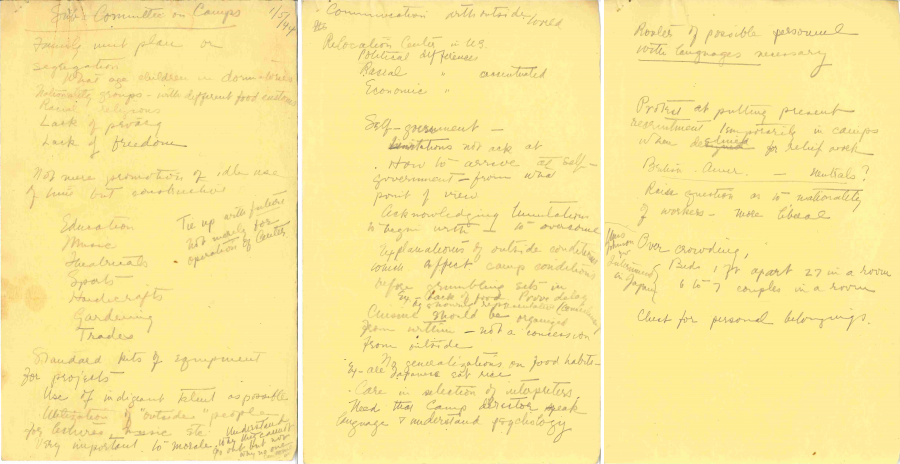 Committee on Camps
Family unit plan or
segregation
What age children in dorm-
Nationality groups - with different food customs
Racial religions
Lack of privacy
Lack of freedom
Not mere promotion of idle use
of time but constructive
Education
Music
Theatricals
Sports
Handicrafts
Gardening
Trades
Tie up with future
Not merely for
operation of Center
Standard kits of equipment
for projects
Use of talent as possible
Utilization of "outside" people
for lectures, music etc.
Very important to morale
Understand
why they cannot
go out but not
why no one
Communication with outside world
Relocation Center in U.S.
Political difference
Racial " accentuated
Economic "
Self-government -
limitations not ask at
How to arrive at self-
government - from what
point of view
Acknowledging limitations
to begin with - to overcome
Explanations of outside conditions
which affect camp conditions
before grumbling sets in
Ex - Lack of food. Room delay
Council should be organized
from within - not a concession
from outside
No generalizations on food habits -
Ex - all Japanese eat rice
Care in selection of interpreters
Need that Camp director speak
language & understand psychology
Roster of possible personnel
with languages necessary
Protest at putting present
recruitment temporarily in camps
when designed for relief work
British - Amer. - Neutrals?
Raise question as to nationality
of workers - more liberal
Over crowding,
Beds 1 ft apart 27 in a room
6 to 7 couples in a room
Internment
in Japan
Chest for personal belongings.